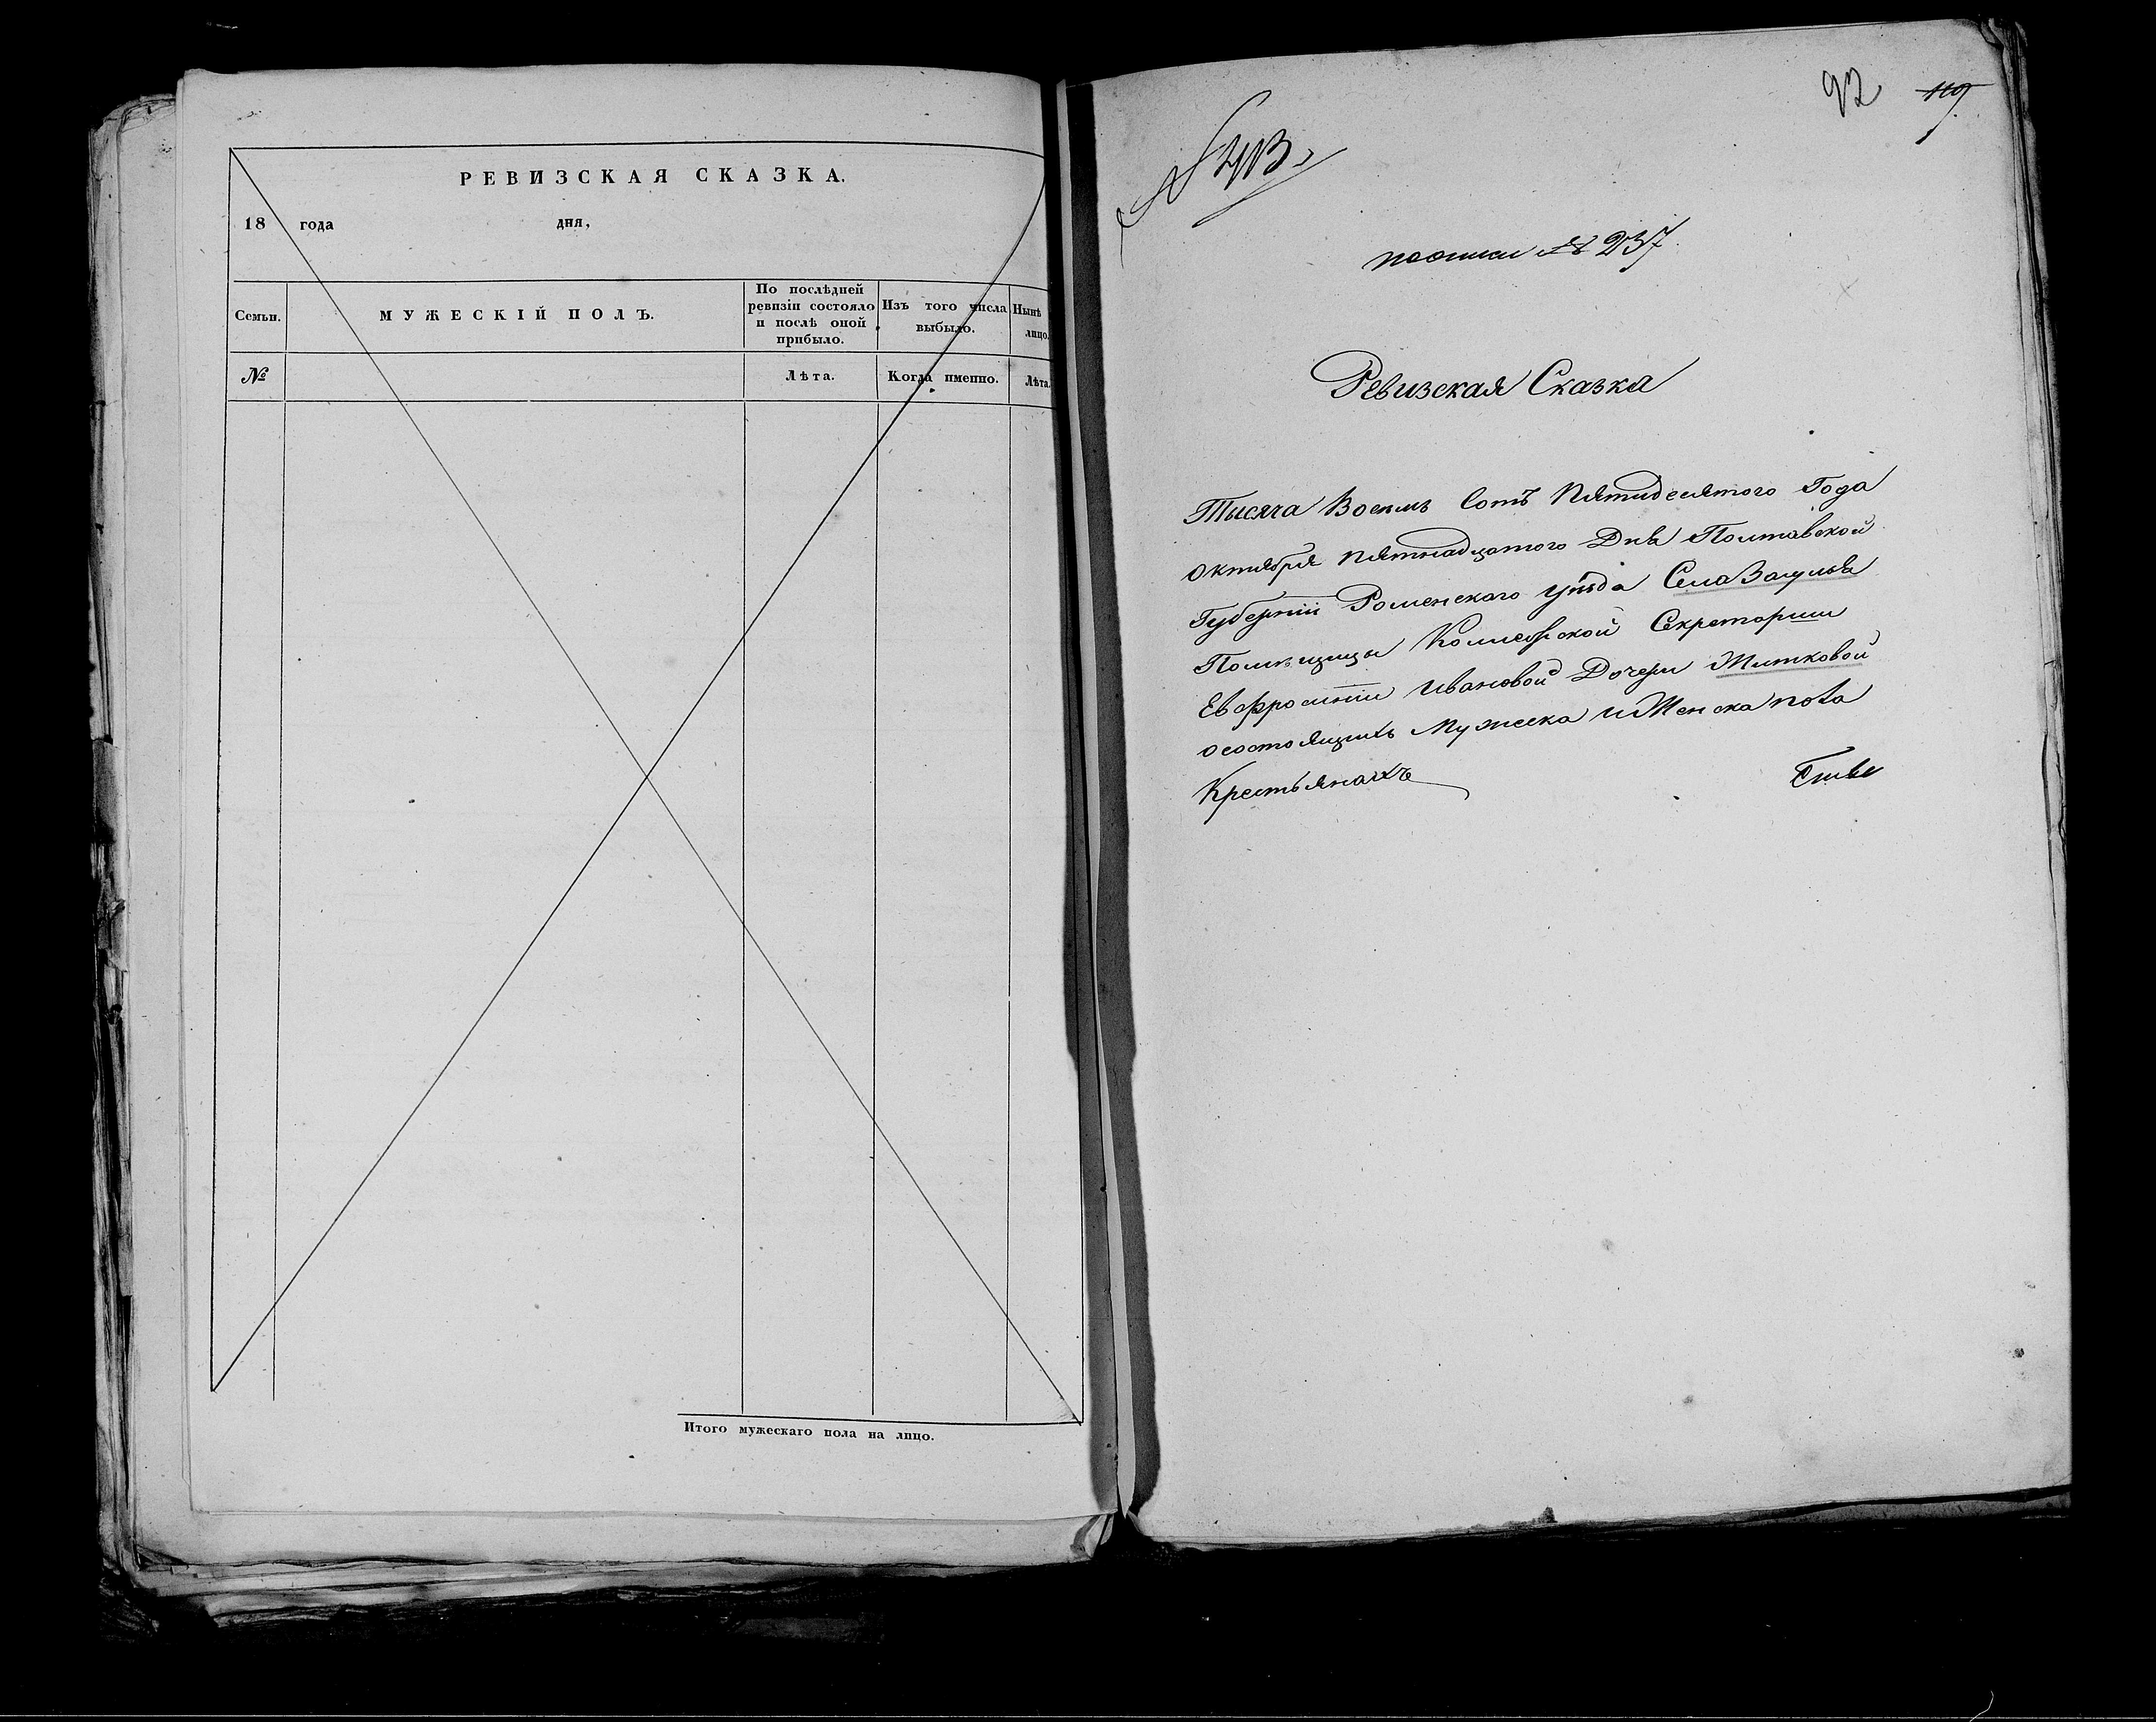 РЕВИЗСКАЯ СКАЗКА.
18 года дня,
Семьи.
МУЖЕСКІЙ ПОЛЪ.
По послѣдней ревизіи состояло и послѣ оной прибыло.
Изъ того числа выбыло.
Нынѣ лицо.
№
Лѣта.
Когда именно.
Лѣта.
Итого мужескаго пола на лицо.
92 119
№ 413
по описи № 237
Ревизская Сказка
Тысяча Восемь Сотъ Пятидесятого Года
Октября пятнадцатого Дня Полтавской
Губерніи Роменскаго уѣзда Села Засулья
Помѣщицы Коллежской Секретарши
Евфросиніи Ивановой Дочери Житковой
о состоящихъ Мужеска и Женска пола
Крестьянахъ